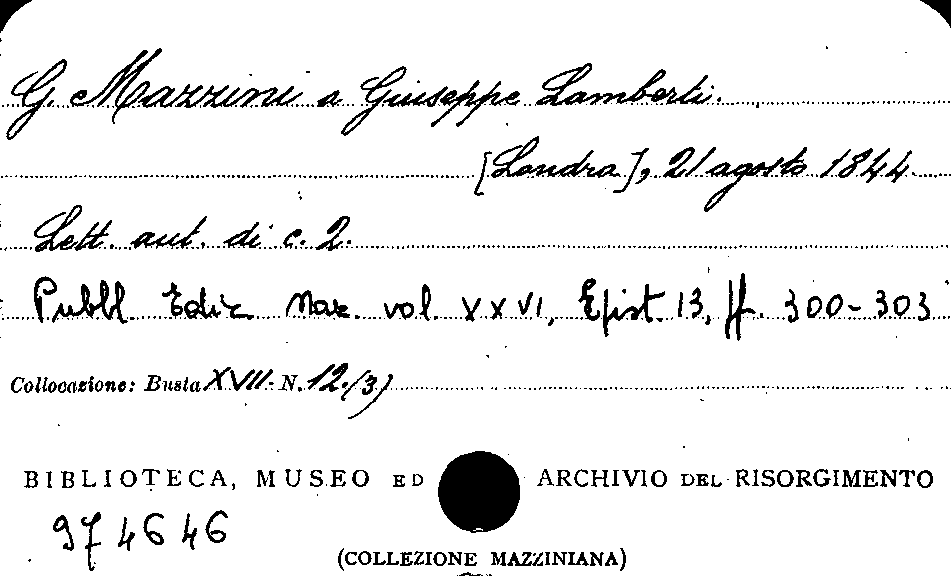 G. Mazzini a Giuseppe Lamberti.
[Londra], 21 agosto 1844
Lett. aut. di c. 2.
Pubbl. Ediz. Naz. vol. XXVI, Epist. 13, ff. 300-303
Collocazione: Busta XVII. N. 12./3)
BIBLIOTECA, MUSEO ED ARCHIVIO DEL RISORGIMENTO
974646
(COLLEZIONE MAZZINIANA)